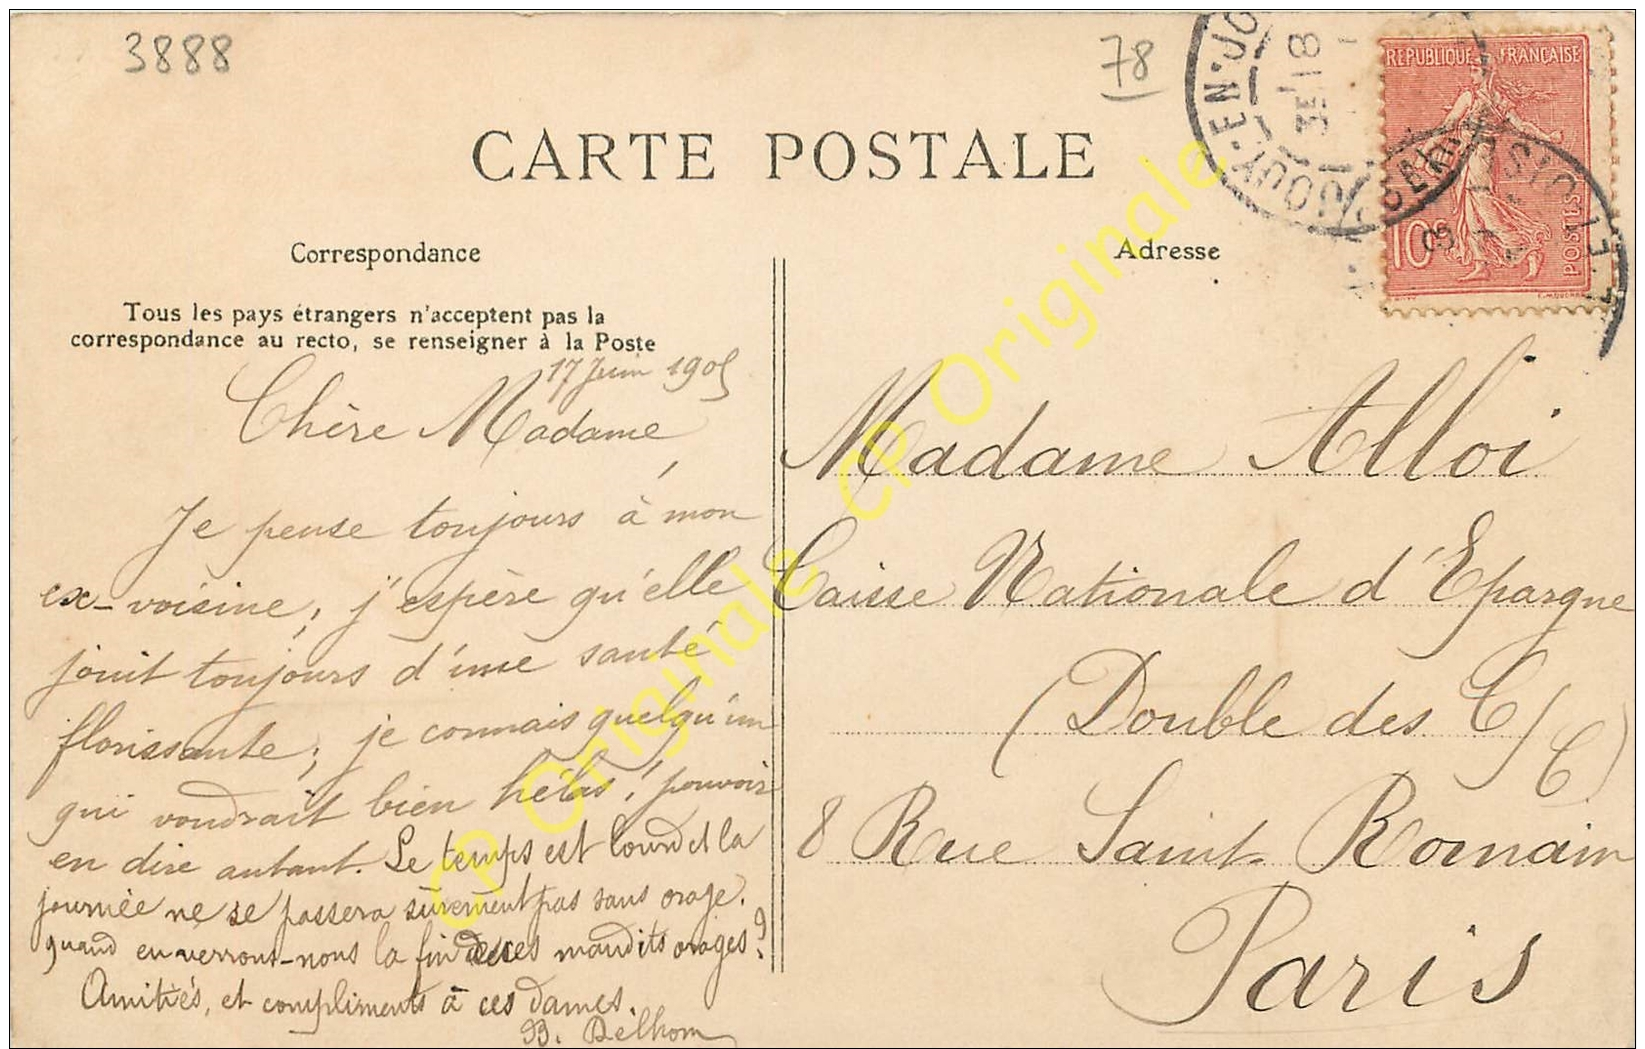 3888
78
CARTE POSTALE
RÉPUBLIQUE FRANÇAISE
10c
POSTES
JOUY·EN·JO
3E 18
Correspondance
Adresse
Tous les pays étrangers n'acceptent pas la
correspondance au recto, se renseigner à la Poste
17 Juin 1905
Chère Madame,
Je pense toujours à mon
ex-voisine, j'espère qu'elle
jouit toujours d'une santé
florissante; je connais quelqu'un
qui voudrait bien hélas! pouvoir
en dire autant. Le temps est lourd et la
journée ne se passera sûrement pas sans orage.
quand en verrons-nous la fin de ces maudits orages?
Amitiés, et compliments à ces dames.
B. Delhom
Madame Alloi
Caisse Nationale d'Epargne
(Double des C/C)
8 Rue Saint-Romain
Paris
CP Originale CP Originale